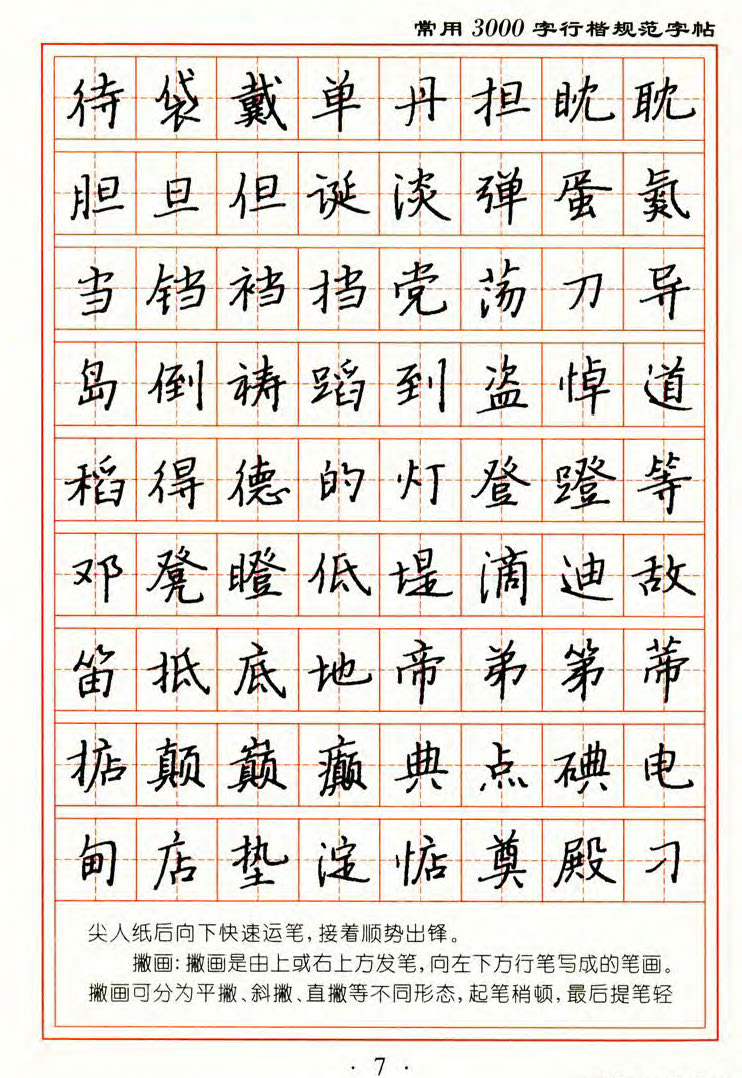 常用3000字行楷规范字帖
待袋戴单丹担眈耽
胆旦但诞淡弹蛋氮
当铛裆挡党荡刀导
岛倒祷蹈到盗悼道
稻得德的灯登蹬等
邓凳瞪低堤滴迪敌
笛抵底地帝弟第蒂
掂颠巅癫典点碘电
甸店垫淀惦奠殿刁
尖入纸后向下快速运笔,接着顺势出锋。
撇画:撇画是由上或右上方发笔,向左下方行笔写成的笔画。
撇画可分为平撇、斜撇、直撇等不同形态,起笔稍顿,最后提笔轻
· 7 ·